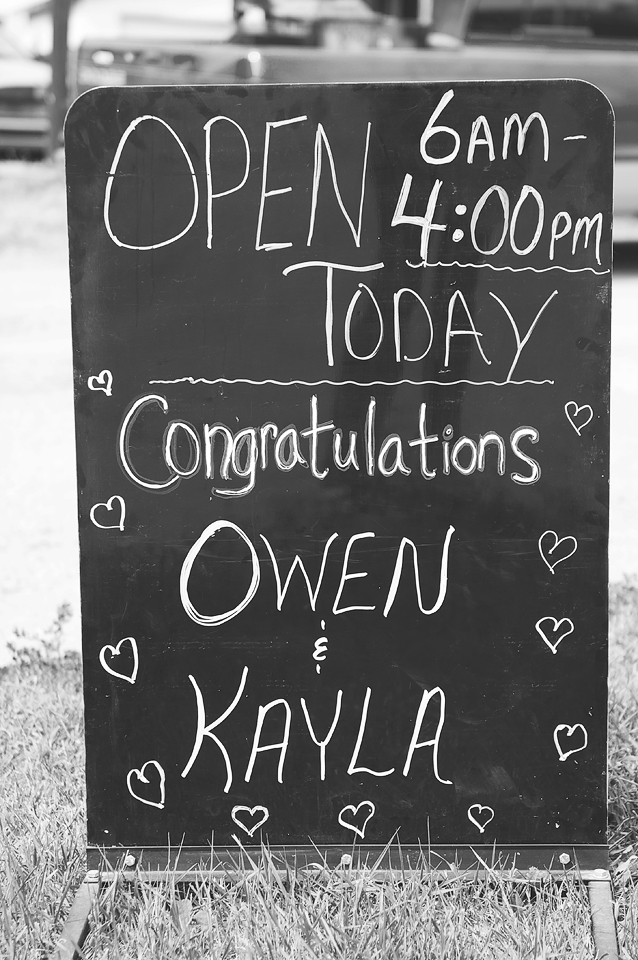 OPEN 6AM-
4:00PM
TODAY
Congratulations
OWEN
&
KAYLA